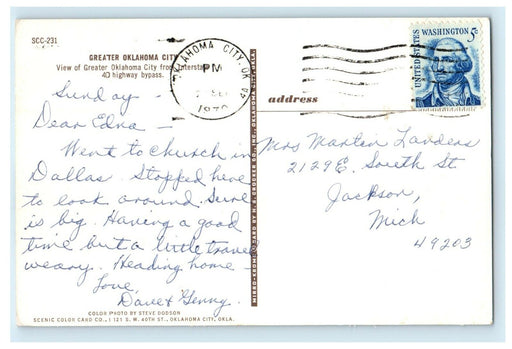 SCC-231
GREATER OKLAHOMA CITY
View of Greater Oklahoma City from Interstate
40 highway bypass.
Sunday -
Dear Edna -
Went to church in
Dallas. Stopped here
to look around. Sure
is big. Having a good
time but a little travel
weary. Heading home -
Love,
Dave & Genny.
COLOR PHOTO BY STEVE DODSON
SCENIC COLOR CARD CO., 1121 S. W. 40TH ST., OKLAHOMA CITY, OKLA.
OKLAHOMA CITY, OK
PM
SEP
1970
UNITED STATES
WASHINGTON 5c
address
Mrs Martin Landers
2129 E. South St
Jackson,
Mich
49203